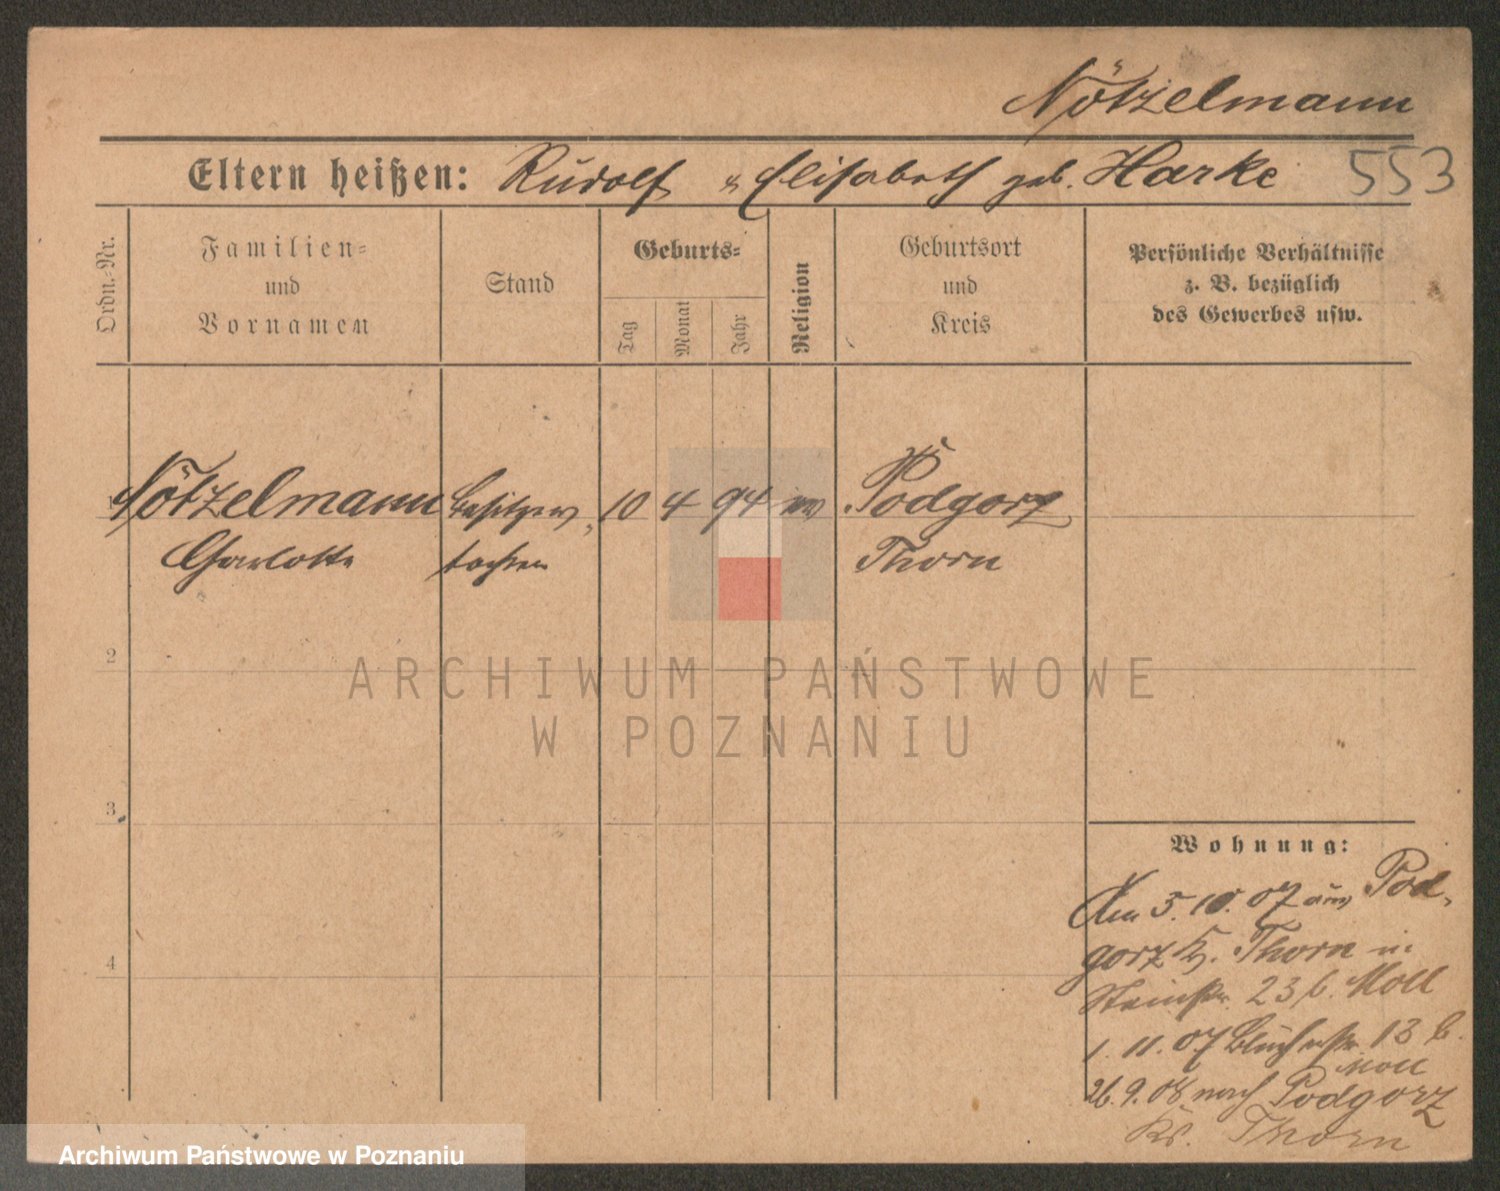 Nötzelmann
Eltern heißen: Rudolf u Elisabeth geb. Harke 553
Ordn.-Nr.
Familien-
und
Vornamen
Stand
Geburts-
Tag
Monat
Jahr
Religion
Geburtsort
und
Kreis
Persönliche Verhältnisse
z. B. bezüglich
des Gewerbes usw.
Nötzelmann Besitzer- 10 4 94 ev Podgorz
Charlotte tochter Thorn
2
ARCHIWUM PAŃSTWOWE
W POZNANIU
3
Wohnung:
Am 5.10.07 aus Pod-
gorz Kr. Thorn in
4
Steinstr. 23 b. Moll
1. 11. 07 Blücherstr. 13 b.
Moll
26. 9. 08 nach Podgorz
Kr. Thorn
Archiwum Państwowe w Poznaniu